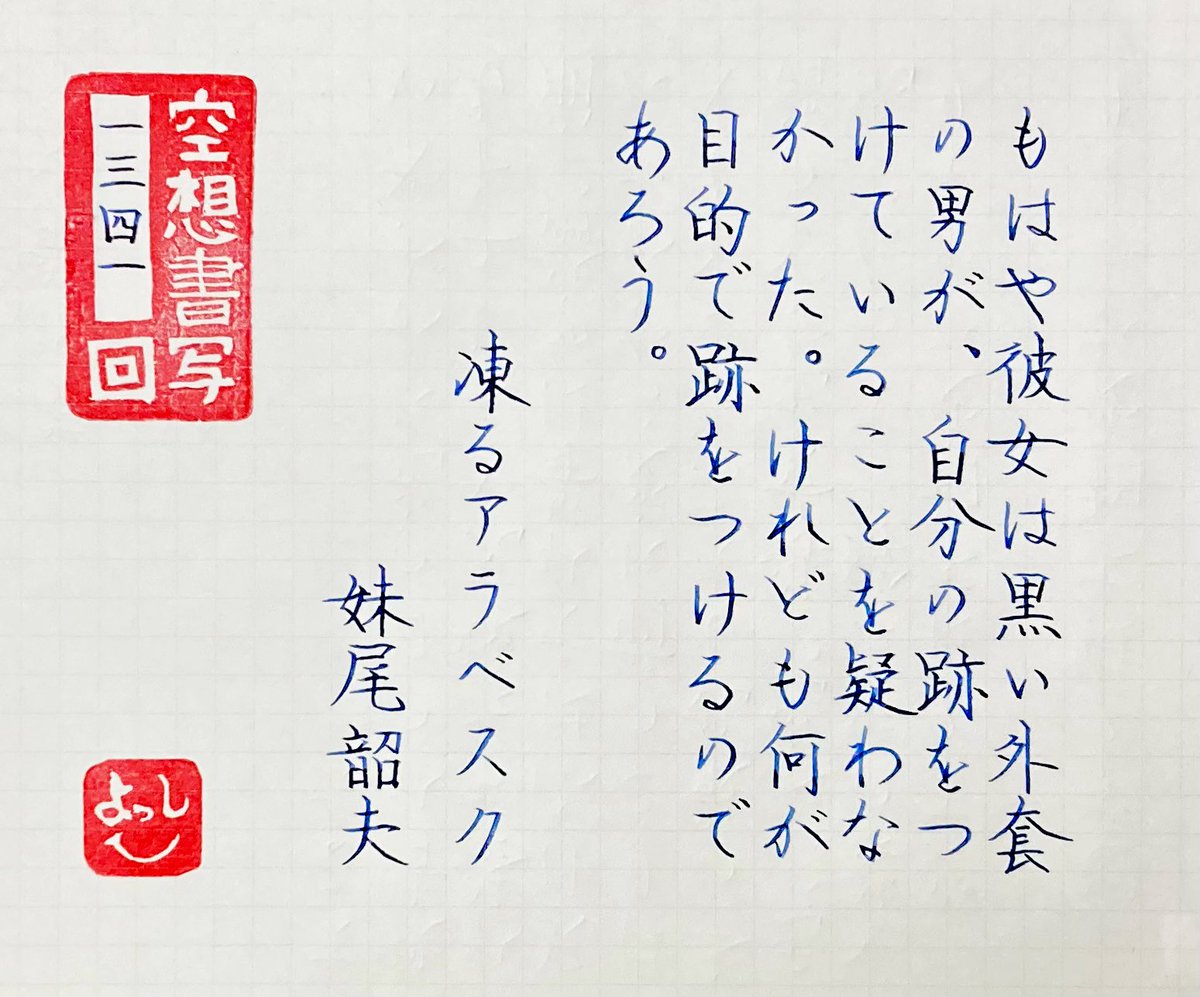 もはや彼女は黒い外套
の男が、自分の跡をつ
けていることを疑わな
かった。けれども何が
目的で跡をつけるので
あろう。
凍るアラベスク
妹尾韶夫
空想書写
一三四一
回
よっし